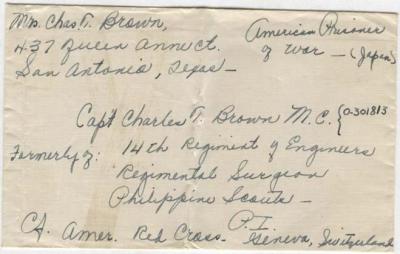 Mrs. Chas. T. Brown,
437 Queen Anne Ct.
San Antonio, Texas —
American Prisoner
of War — (Japan)
Capt Charles T. Brown M.C. {0-301813
Formerly of: 14th Regiment of Engineers
Regimental Surgeon
Philippine Scouts —
P.I.
Amer. Red Cross — Geneva, Switzerland